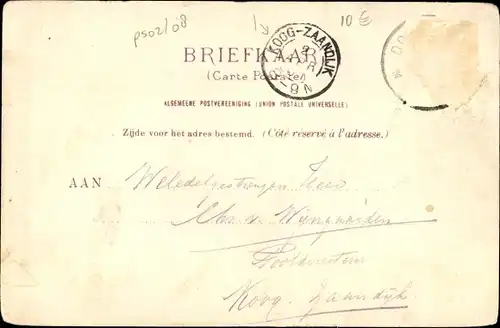 PS02/08 10 €
BRIEFKAART
(Carte Postale)
KOOG-ZAANDIJK
8-9N
ALGEMEENE POSTVEREENIGING (UNION POSTALE UNIVERSELLE)
Zijde voor het adres bestemd. (Côté réservé à l'adresse.)
AAN Weledelgestrengen Heer
Koog Zaandijk